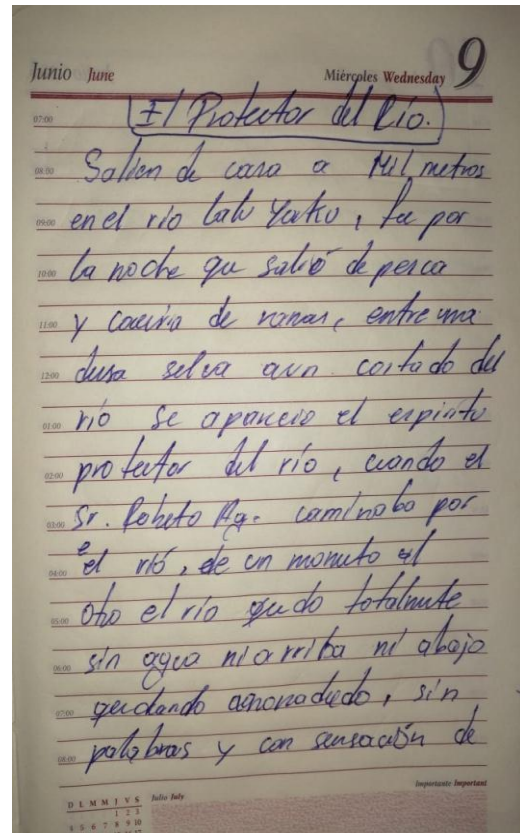 Junio June Miércoles Wednesday 9
El Protector del Río.
07:00
08:00 Salien de casa a Mil metros
09:00 en el río Lalu Yaku, fue por
10:00 la noche que salió de pesca
11:00 y cacería de ranas, entre una
12:00 densa selva aun costado del
01:00 río se aparecio el espiritu
02:00 protector del río, cuando el
03:00 Sr. Roberto Ag. caminaba por
04:00 el rió, de un monuto al
05:00 otro el río quedo totalmute
06:00 sin agua ni arriba ni abajo
07:00 quedando anonadado, sin
08:00 palabras y con sensación de
Importante Important
D L M M J V S Julio July
1 2 3
4 5 6 7 8 9 10